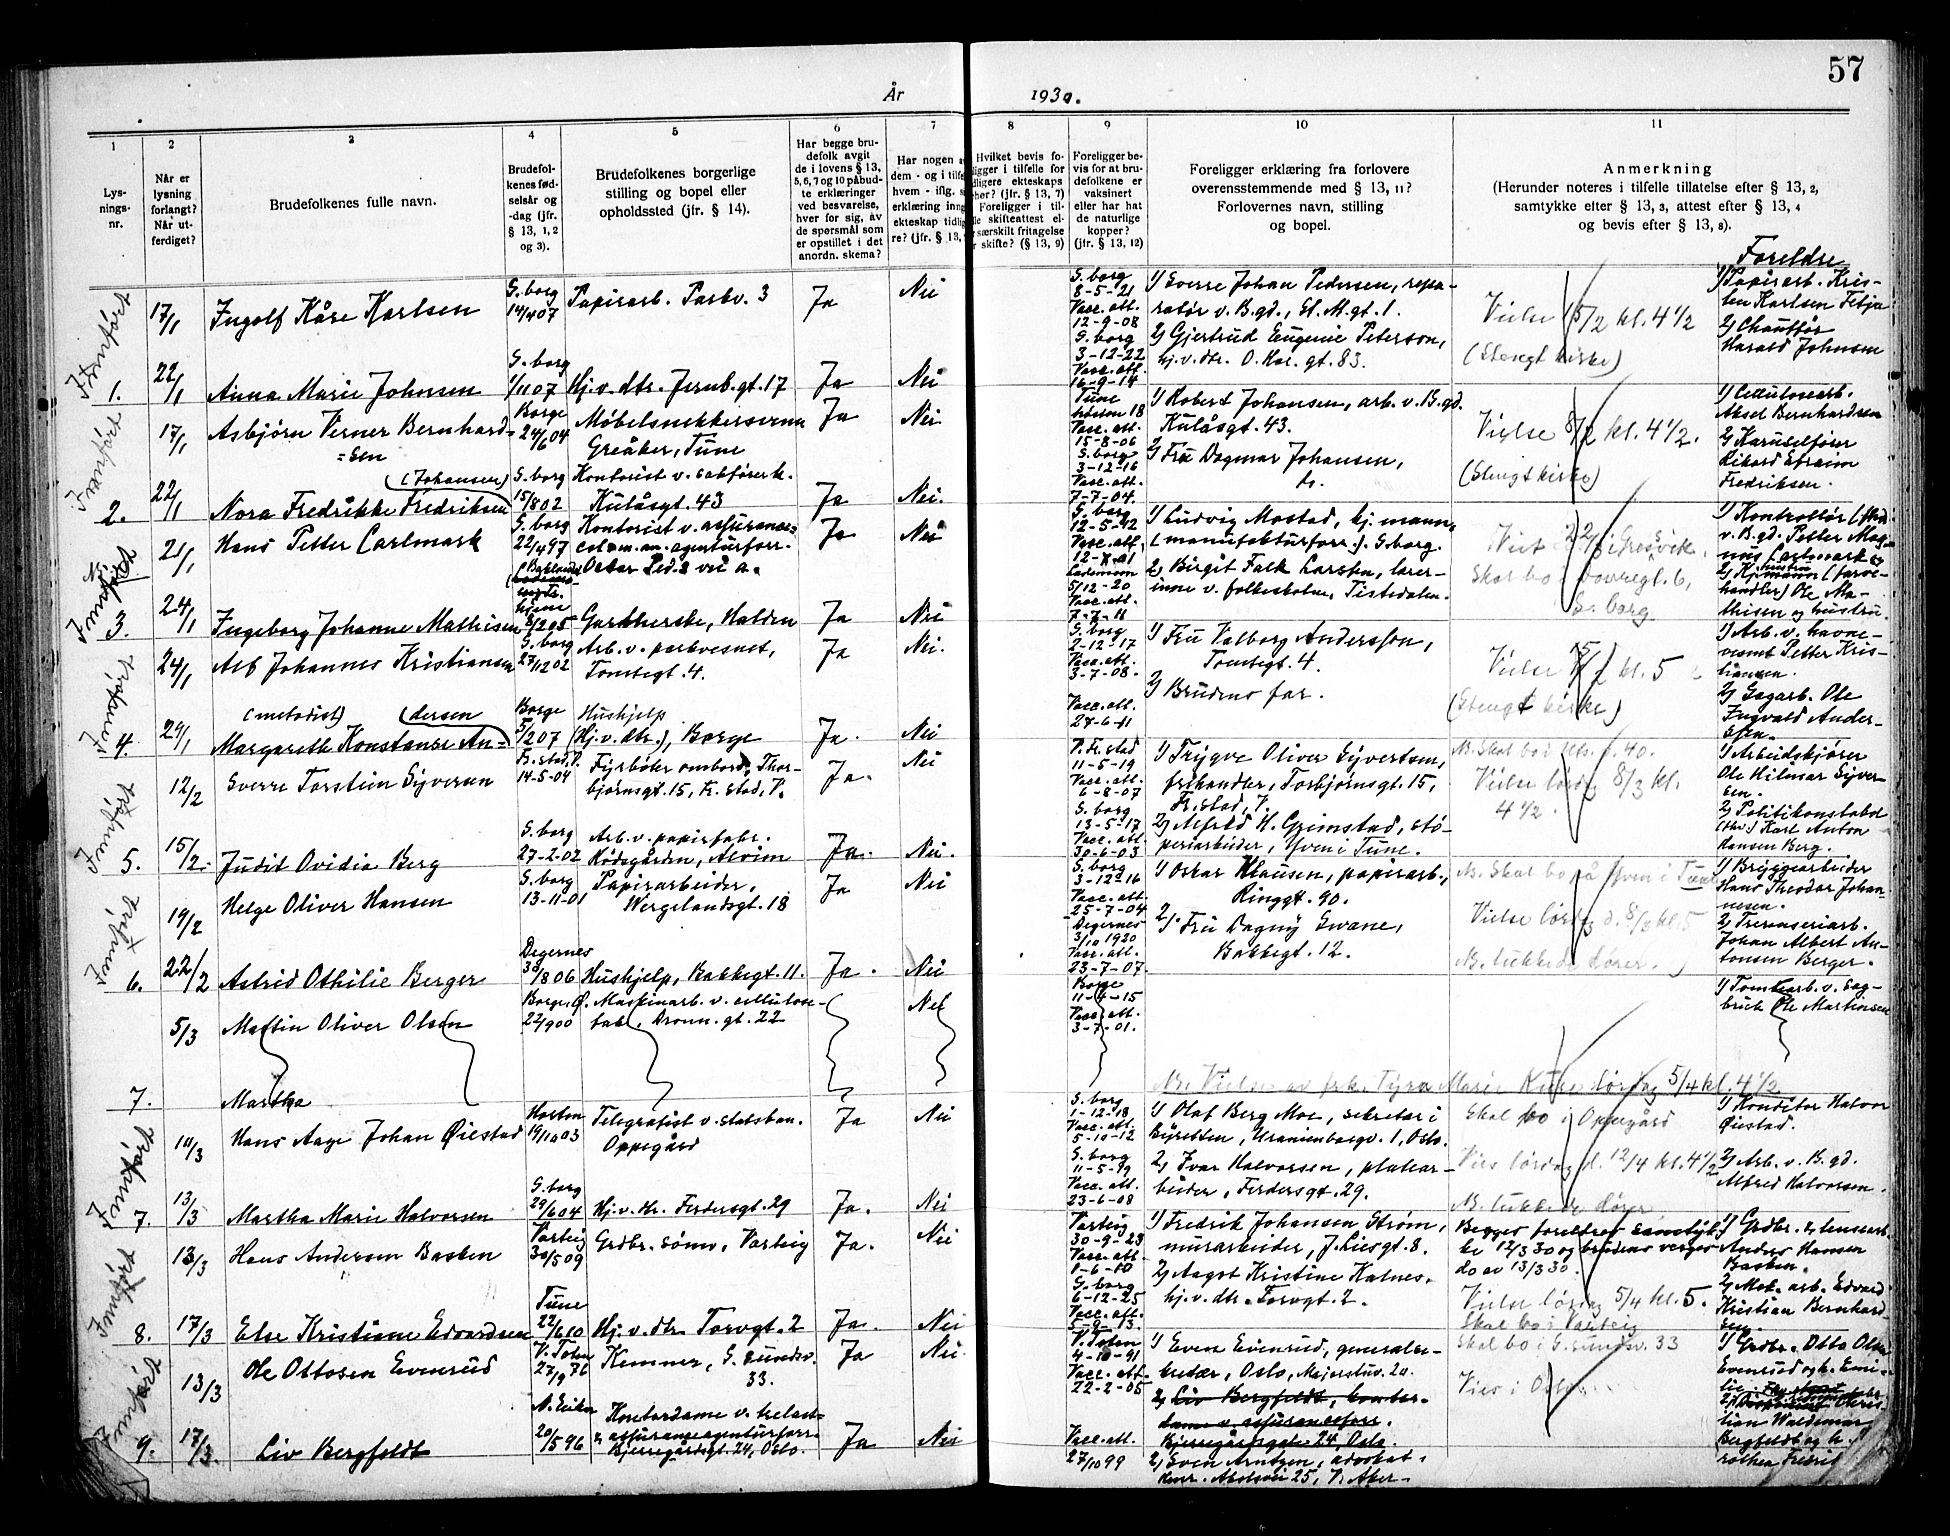 57
År 1930.
1 2 3 4 5 6 7 8 9 10 11
Lys-
nings-
nr.
Når er
lysning
forlangt?
Når ut-
ferdiget?
Brudefolkenes fulle navn.
Brudefol-
kenes fød-
selsår og
-dag (jfr.
§ 13, 1, 2
og 3).
Brudefolkenes borgerlige
stilling og bopel eller
opholdssted (jfr. § 14).
Har begge bru-
defolk avgit
de i lovens § 13,
5, 6, 7 og 10 påbud-
te erklæringer
ved besvarelse,
hver for sig, av
de spørsmål som
er opstillet i det
anordn. skema?
Har nogen
dem - og i tilfe
hvem - iflg.
erklæring inng
ekteskap tidlig
re? (jfr. § 13,
Hvilket bevis fo-
ligger i tilfelle for
dligere ekteskaps
hør? (jfr. § 13, 7)
Foreligger i til-
le skifteattest el-
særskilt fritagelse
skifte? (§ 13, 9)
Foreligger be-
vis for at bru-
defolkene er
vaksinert
eller har hat
de naturlige
kopper?
(jfr. § 13, 12)
Foreligger erklæring fra forlovere
overensstemmende med § 13, 11?
Forlovernes navn, stilling
og bopel.
Anmerkning
(Herunder noteres i tilfelle tillatelse efter § 13, 2,
samtykke efter § 13, 3, attest efter § 13, 4
og bevis efter § 13, 8).
Foreldre
Innført
17/1 Ingolf Kåre Karlsen
S.borg
14/4 07
Papirarb. Parkv. 3
Ja Nei
S.borg
8-5-21
Vacc. att.
12-9-08
1) Sverre Johan Pedersen, repa-
ratør v. B.gd., St. M.gt. 1.
Vielse 15/2 kl. 4 1/2
(Stengt kirke)
1) Papirarb. Kris-
ten Karlsen Tebja
1. 22/1 Anna Marie Johnsen
S.borg
1/11 07
Hj.v.dtr. Jernb.gt. 17
Ja Nei
S.borg
3-12-22
Vacc. att.
16-9-14
2) Gjertrud Eugenie Peterson,
hj.v.dtr. O. Har. gt. 83.
2) Chauffør
Harald Johnsen
Innført
17/1 Asbjørn Verner Bernhard-
=sen
Borge
24/6 04
Møbelsnekkersvenn
Greåker, Tune
Ja Nei
Tune
Vacc. att.
15-8-06
1) Robert Johansen, arb. v. B.gd.
Kulåsgt. 43.
Vielse 8/2 kl. 4 1/2.
(Stengt kirke)
1) Cellulosearb.
Aksel Bernhardsen
2. 22/1 Nora Fredrikke Fredriksen
(Johansen)
S.borg
15/8 02
Kontorist v. sakfører k.
Kulåsgt. 43
Ja Nei.
S.borg
3-12-16
Vacc. att.
7-7-04.
2) Fru Dagmar Johansen,
ds.
2) Karuselfører
Rikard Efraim
Fredriksen.
Innført
21/1 Hans Petter Carlmark
S.borg
22/4 97
Kontorist v. assurance=
Oscar Ped.s vei a.
Ja Nei
S.borg
12-5-12
Vacc. att.
1) Ludvig Mostad, hj.mann,
(manufakturforr.). S.borg.
1) Kontrollør
v. B.gd. Petter Mag-
nus Carlmark
3. 24/1 Ingeborg Johanne Mathisen
8/2 05
Garnherske, Halden
Ja Nei
5/12-20
Vacc. att.
7-7-11
2) Birgit Falk Larsen, lærer-
inne v. folkeskolen, Tistedalen.
S.borg
handler) Ole Ma-
thisen og hustru.
Innført
24/1 Alf Johannes Kristiansen
S.borg
27/12 02
Arb. v. parkvesnet,
Tomtegt. 4.
Ja Nei.
S.borg
2-12-17
Vacc. att.
3-7-08.
1) Fru Valborg Andersson,
Tomtegt. 4.
Vielse 15/2 kl. 5
(Stengt kirke)
1) Arb. v. havne-
vesnet Petter Kris-
tiansen.
(metodist) (dersen
4. 29/1 Margareth Konstanse An-
Borge
5/2 07
Hushjelp
(Hj.v.dtr.), Borge
Ja. Nei
Vacc. att.
27-6-11
2) Brudens far.
2) Sagarb. Ole
Ingvald Ander-
sen.
Innført
12/2 Sverre Torstein Syversen
Fr.stad, V.
14-5-04
Fyrbøter ombord, Thor-
bjørnsgt. 15, Fr.stad, V.
Ja. Nei
V. Fr.stad
11-5-19
Vacc. att.
6-8-07
1) Trygve Oliver Syvertsen,
frihandler, Torbjørnsgt. 15,
Fr.stad, V.
Vielse lørdag 8/3 kl.
4 1/2.
1) Arbeidskjører
Ole Hilmar Syver-
sen.
5. 15/2. Judit Ovidia Berg
S.borg
27-2-02
Arb. v. papirfabr.
Kådsgården, Alvim
Ja. Nei.
S.borg
13-5-17
Vacc. att.
30-6-03
2) Alfred H. Grimstad, stø-
periarbeider, Yven i Tune.
2) Politikonstabel
Karl Anton
Hansen Berg.
Innført
19/2 Helge Oliver Hansen
S.borg
13-11-01
Papirarbeider,
Wergelandsgt. 18
Ja Nei
S.borg
3-12-16
Vacc. att.
25-7-04
1) Oskar Klausen, papirarb.,
Ringgt. 90.
N.B. Skal bo på Yven i Tune
Vielse lørdag d. 8/3 kl. 5
1) Bryggearbeider
Hans Theodor Johan-
nesen.
6. 22/2 Astrid Othilie Berger
Degernes
30/8 06
Hushjelp, Bakkegt. 11.
Ja. Nei
Degernes
3/10 1920
Vacc. att.
23-7-07.
2) Fru Dagny Swane,
Bakkegt. 12.
N.B. lukkede dører.
2) Tremasseriarb.
Johan Albert An-
tonsen Berger.
5/3 Martin Oliver Olsen
Borge, Ø.
22/9 00
Maskinarb. v. cellulose-
fab., Dronn. gt. 22
Nei
Borge
11-4-15
Vacc. att.
3-7-01.
1) Tomtearb. v. Sag-
bruk Ole Martinsen
7. Martha
N.B. Vielse av frk. Tyra Marie lørdag 5/4 kl. 4 1/2
Innført
10/3 Hans Aage Johan Øiestad
Horten
19/10 03
Telegrafist v. statsban.
Oppegård
Ja Nei
S.borg
1-12-18
Vacc. att.
5-10-12
1) Olaf Berg Moe, sekretær i
Byretten, Uranienborgv. 1, Oslo.
Skal bo i Oppegård
Vies lørdag d. 12/4 kl. 4 1/2
1) Konditor Halvor
Øiestad.
7. 13/3 Martha Marie Halvorsen
S.borg
29/6 04
Hj.v.dtr. Ferdersgt. 29
Ja. Nei
S.borg
11-5-19
Vacc. att.
23-6-08
2) Ivar Halvorsen, platear-
beider, Ferdersgt. 29.
N.B. lukkede dører
2) Arb. v. B.gd.
Alfred Halvorsen.
Innført
13/3 Hans Andersen Basken
Varteig
30/5 09
Grdbr. sønn, Varteig
Ja. Nei
Varteig
30-9-23
Vacc. att.
1-6-10
1) Fredrik Johansen Strøm,
murarbeider, J. Liesgt. 8.
Begges foreldres samtyk-
ke 12/3 30 og brudens verges
do av 13/3 30.
1) Grdbr. &
Anders Hansen
Basken.
8. 17/3 Else Kristiane Edvardsen
Tune
22/6 10
Hj.v.dtr. Torvgt. 2
Ja. Nei
S.borg
6-12-25
Vacc. att.
5-9-13
2) Aagot Kristine Halnes,
hj.v.dtr. Torvgt. 2.
Vielse lørdag 5/4 kl. 5.
Skal bo i Varteig
2) Mek. arb. Edvard
Kristian Bernhard-
sen.
Innført
13/3 Ole Ottosen Evensrud
V. Toten
27/9 76
Kemner, G. sundsv.
33.
Ja Nei.
V. Toten
4-10-91
Vacc. att.
22-2-05
1) Even Evensrud, generalse-
kretær, Oslo, Majorstuv. 20.
Skal bo i G.sundsv. 33
Vies i Oslo
1) Grdbr. Otto Olsen
Evensrud og h. Emi-
lie
9. 17/3. Liv Bergfeldt
N. Eiker
20/5 96
Kontordame v.
& assuranseagenturforr.
Bjerregårdsgt. 24, Oslo.
Ja Nei
Vacc. att.
27/10 99
2) Liv Bergfeldt, kontor-
dame v. assuranseforr.
Bjerregårdsgate 24, Oslo.
2) Sven Arntzen, advokat,
25, V. Aker-
Chris-
tian Waldemar
Bergfeldt og h.
Fredrik